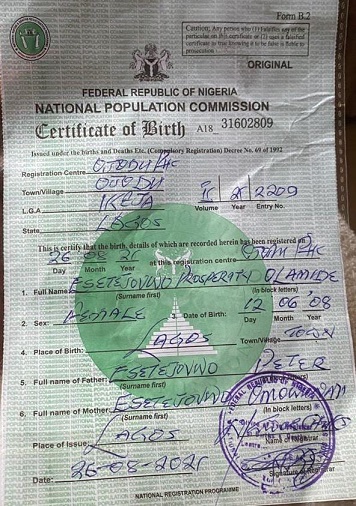 Form B.2
Caution: Any person who (1) Falsifies any of the
particular on this certificate or (2) uses a falsified
certificate as true knowing it to be false is liable to
prosecution.
ORIGINAL
FEDERAL REPUBLIC OF NIGERIA
NATIONAL POPULATION COMMISSION
Certificate of Birth A18 31602809
Issued under the births and Deaths Etc. (Compulsory Registration) Decree No. 69 of 1992
Registration Centre OJODU PHC
Town/Village OJODU
L.G.A IKEJA Volume Year Entry No. 2209
State LAGOS
This is certify that the birth, details of which are recorded herein has been registered on
26 08 21 at this registration centre OJODU PHC
Day Month Year
1. Full Name: ESETEJOVWO PROSPERATY OLAMIDE
(Surname first) (In block letters)
2. Sex: FEMALE 3. Date of Birth: 12 06 '08
Day Month Year
4. Place of Birth: LAGOS Town/Village TOWN
5. Full name of Father: ESETEJOVWO PETER
(Surname first) (In block letters)
6. Full name of Mother: ESETEJOVWO
(Surname first) (In block letters)
Place of Issue: LAGOS Name of Registrar
Date: 26-08-2021 Signature of Registrar
NATIONAL REGISTRATION PROGRAMME